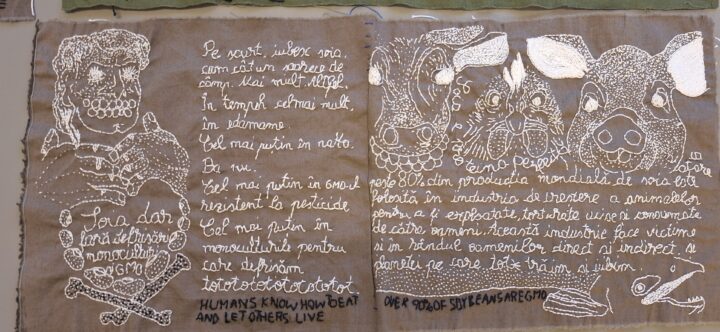 Pe scurt, iubesc soia,
cam cât un șoarece de
câmp. Mai mult. Altfel.
În tempeh cel mai mult,
în edamame.
Cel mai puțin în nato.
Ba nu.
Cel mai puțin în GMO-ul
rezistent la pesticide
Cel mai puțin în
monoculturile pentru
care defrișăm
totototototototototot.
HUMANS KNOW HOW TO EAT
AND LET OTHERS LIVE
Soia dar
fără defrișări
monoculturi
GMO
peste 80% din producția mondială de soia este
folosită în industria de creștere a animalelor
pentru a fi exploatate, torturate ucise și consumate
de către oameni. Această industrie face victime
și în rândul oamenilor direct și indirect, și
planetei pe care toț* trăim și iubim.
OVER 90% OF SOYBEANS ARE GMO